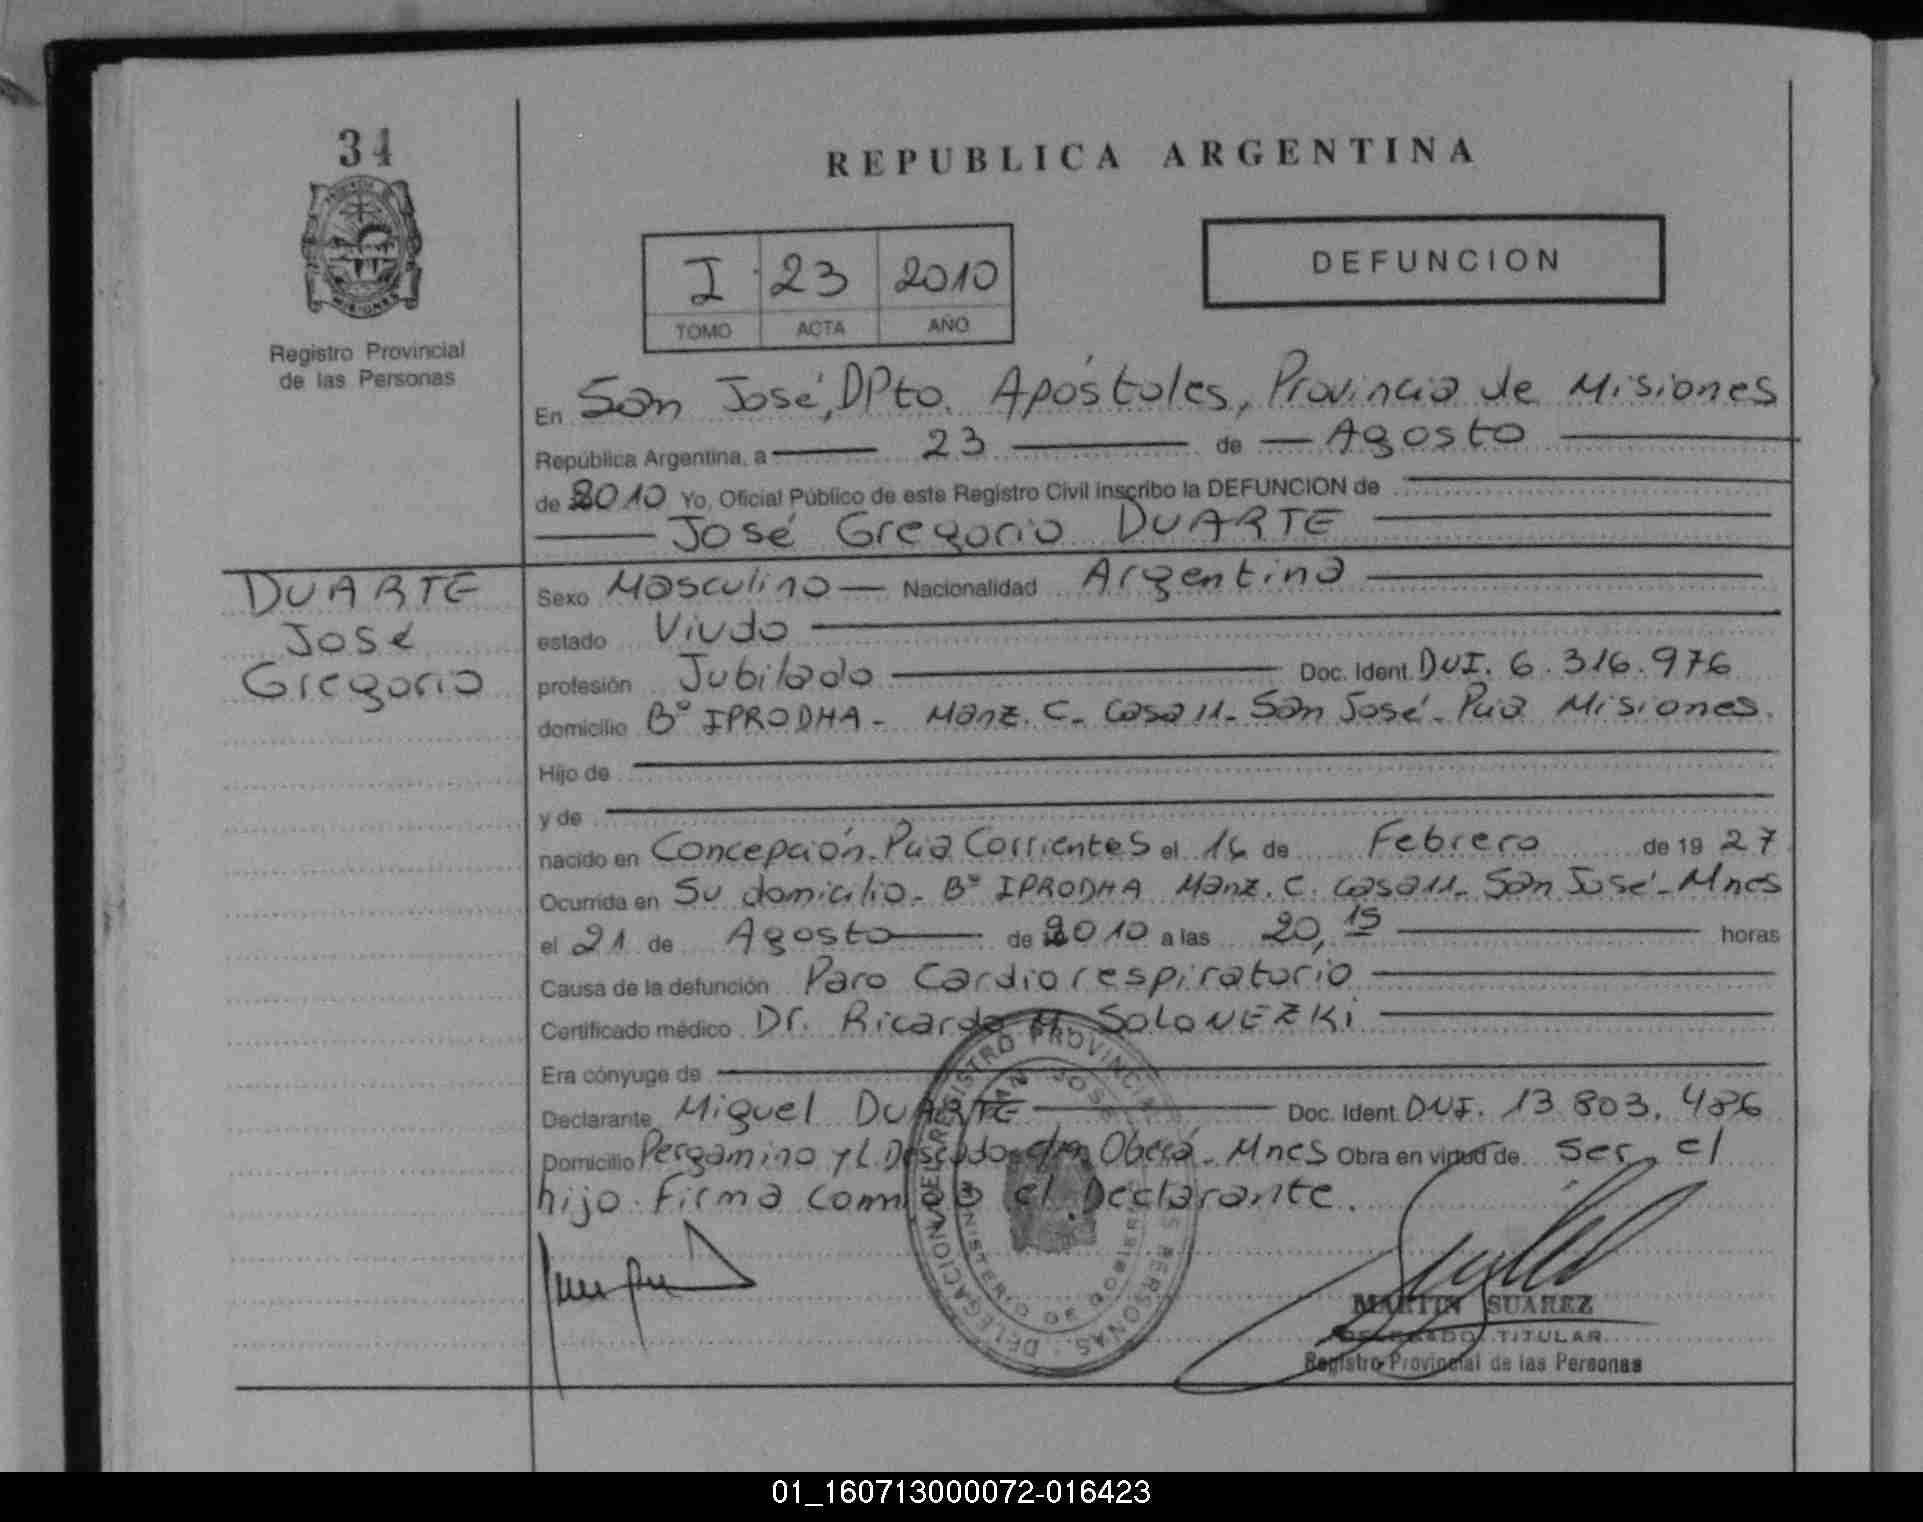 34
PROVINCIA DE
MISIONES
Registro Provincial
de las Personas
REPUBLICA ARGENTINA
I 23 2010
TOMO ACTA AÑO
DEFUNCION
En San José, DPto. Apóstoles, Provincia de Misiones
República Argentina, a 23 de Agosto
de 2010 Yo, Oficial Público de este Registro Civil inscribo la DEFUNCION de
José Gregorio DUARTE
DUARTE
José
Gregorio
Sexo Masculino Nacionalidad Argentina
estado Viudo
profesión Jubilado Doc. Ident. DNI. 6.316.976
domicilio Bº IPRODHA - Manz. C - Casa 11 - San José - Pcia Misiones.
Hijo de
y de
nacido en Concepción - Pcia Corrientes el 16 de Febrero de 19 27
Ocurrida en Su domicilio - Bº IPRODHA Manz. C. Casa 11 - San José - Mnes
el 21 de Agosto de 2010 a las 20,15 horas
Causa de la defunción Paro Cardiorespiratorio
Certificado médico Dr. Ricardo M. SOLONEZKI
Era cónyuge de
Declarante Miguel DUARTE Doc. Ident. DNI. 13.803.486
Domicilio Pergamino y L. Obera - Mnes Obra en virtud de ser el
hijo. Firma Conmigo el Declarante.
DELEGACION DEL REGISTRO PROVINCIAL DE LAS PERSONAS
SAN JOSE
MINISTERIO DE GOBIERNO
MARTIN SUAREZ
DELEGADO TITULAR
Registro Provincial de las Personas
01_160713000072-016423